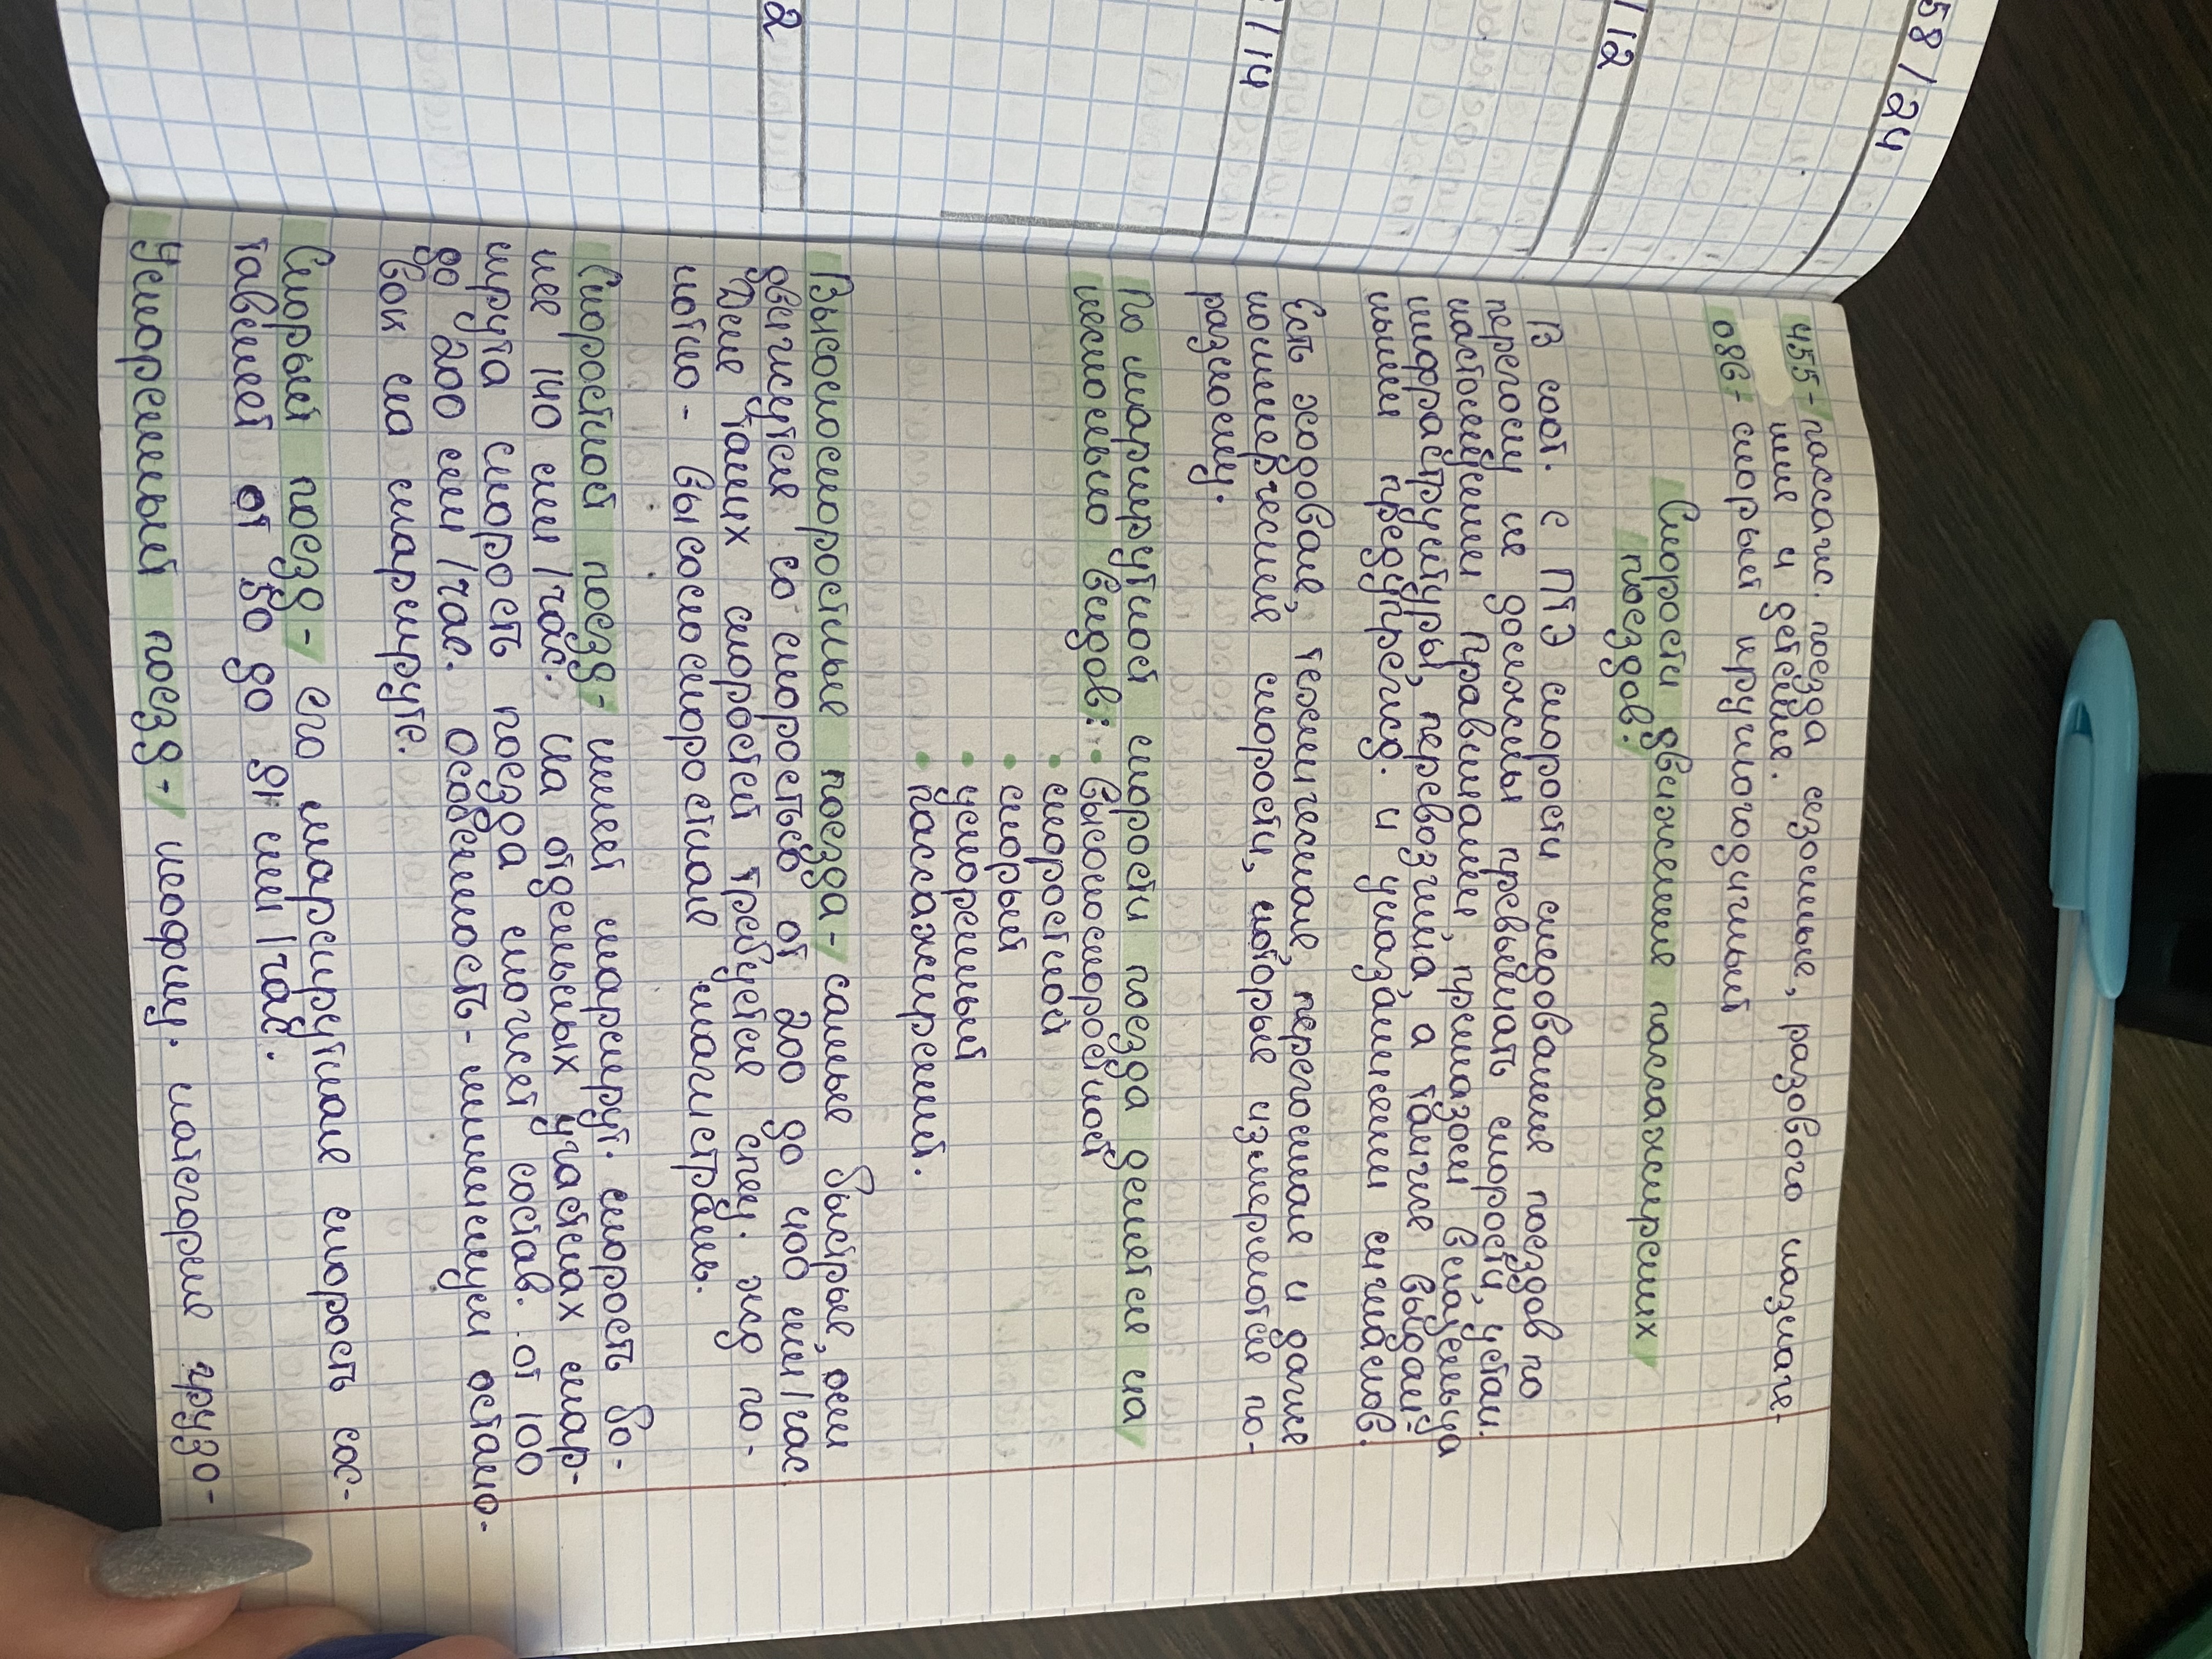 58/24
/12
/14
2
455- пассаж. поезда сезонные, разового назначе-
ния и детские.
086- скорый круглогодичный
Скорости движения пассажирских
поездов.
В соот. с ПТЭ скорости следования поездов по
перегону не должны превышать скорости, устан.
настоящими Правилами, приказом владельца
инфраструктуры, перевозчика, а также выдан-
ными предупрежд. и указаниями сигналов.
Есть ходовая, техническая, перегонная и даже
коммерческие скорости, которые измеряются по-
разному.
По маршрутной скорости поезда делятся на
несколько видов: • высокоскоростной
• скоростной
• скорый
• ускоренный
• пассажирский.
Высокоскоростные поезда- самые быстрые, они
движутся со скоростью от 200 до 400 км/час.
Для таких скоростей требуется спец. жд по-
лотно - высокоскоростная магистраль.
Скоростной поезд- имеет маршрут. скорость бо-
лее 140 км/час. На отдельных участках мар-
шрута скорость поезда может состав. от 100
до 200 км/час. Особенность- минимум остано-
вок на маршруте.
Скорый поезд- его маршрутная скорость сос-
тавляет от 50 до 91 км/час.
Ускоренный поезд- неофиц. категория грузо-